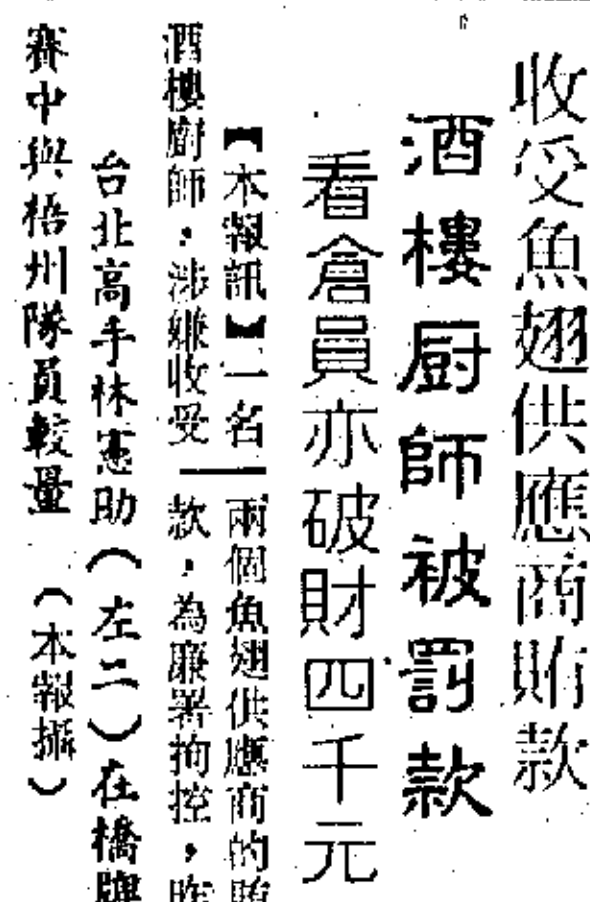 收受魚翅供應商賄款
酒樓厨師被罰款
看倉員亦破財四千元
【本報訊】一名
酒樓廚師,涉嫌收受
兩個魚翅供應商的賄
款,為廉署拘控,昨
台北高手林憲助(左二)在橋牌
賽中與梧州隊員較量 (本報攝)